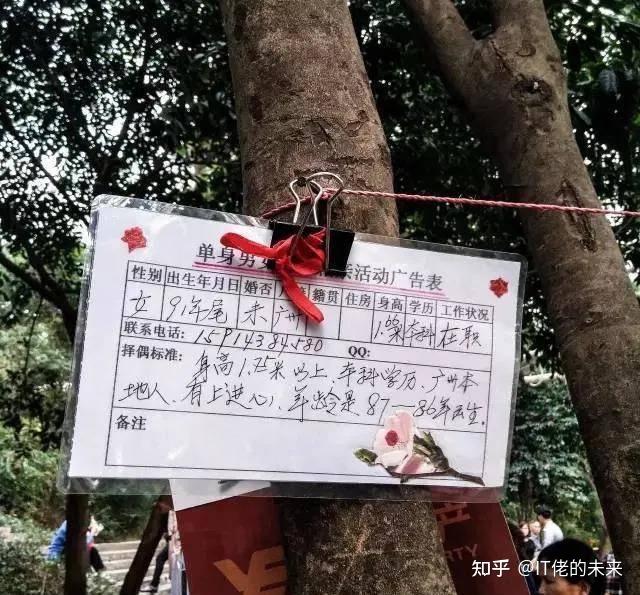 单身男 亲活动广告表
性别 出生年月日 婚否 籍贯 住房 身高 学历 工作状况
女 91年尾 未 广州 本科 在职
联系电话: 15914384580 QQ:
择偶标准: 身高1.75米以上、本科学历、广州本
地人、有上进心、年龄是87—86年出生.
备注
RTY
知乎 @IT佬的未来